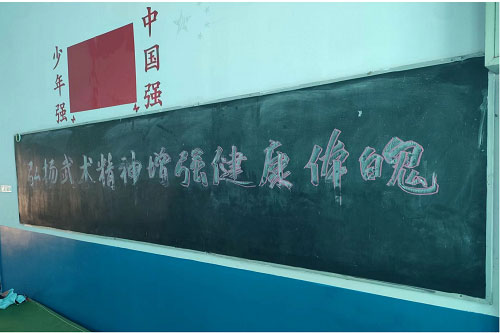 少年强
中国强
弘扬武术精神增强健康体魄